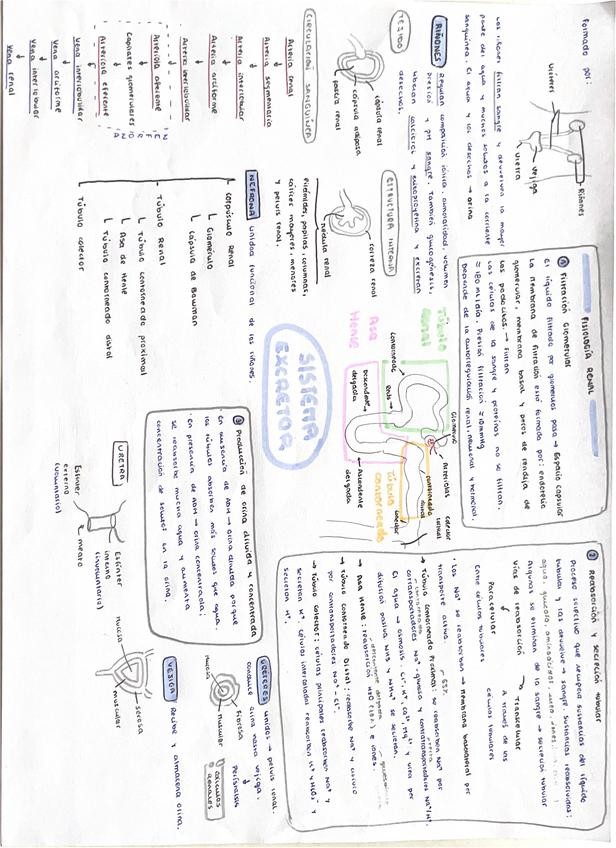 Formado por:
Uréteres
Riñones
Vejiga
Uretra
Los riñones filtran sangre y devuelven la mayor
parte del agua y muchos solutos a la corriente
sanguínea. El agua y los desechos → orina
RIÑONES
Regulan composición iónica, osmolaridad, volumen
presión y pH sangre. También gluconeogénesis,
liberan calcitriol y eritropoyetina y excretan
desechos.
TEJIDO
cápsula renal
cápsula adiposa
fascia renal
ESTRUCTURA INTERNA
corteza renal
médula renal
Pirámides, papilas, columnas,
cálices mayores, menores
y pelvis renal.
CIRCULACIÓN SANGUÍNEA
Arteria renal
Arteria segmentaria
Arteria interlobular
Arteria arciforme
Arteria interlobulillar
Arteriola aferente
Capilares glomerulares
Arteriola eferente
Vena interlobulillar
Vena arciforme
Vena interlobular
Vena renal
NEFRONA
NEFRONA unidad funcional de los riñones.
Corpúsculo Renal
Glomérulo
Cápsula de Bowman
Túbulo Renal
Túbulo contorneado proximal
Asa de Henle
Túbulo contorneado distal
Túbulo colector
SISTEMA
EXCRETOR
FISIOLOGÍA RENAL
① Filtración Glomerular
El líquido filtrado por glomérulos pasa → Espacio capsular
La membrana de filtración está formada por: endotelio
glomerular, membrana basal y poros de rendija de
los podocitos → filtran
Las células de la sangre y proteínas no se filtran.
= 180 ml/día. Presión filtración = 10mmHg
Depende de la autorregulación renal, neuronal y hormonal.
Túbulo
renal
Asa
Henle
Contorneado
recto
Descendente
delgada
Glomérulo
Arteriolas
Ascendente
delgada
Túbulo
contorneado
distal
② Reabsorción y secreción tubular
Proceso selectivo que recupera sustancias del líquido
tubular y las devuelve a sangre. Sustancias reabsorbidas:
agua, glucosa, aminoácidos, urea, iones
Algunos se eliminan de la sangre → secreción tubular
Vías de reabsorción
Paracelular
Entre células tubulares
Transcelular
A través de las
células tubulares
· Los Na⁺ se reabsorben → membrana basolateral por
transporte activo.
→ Túbulo contorneado Proximal: se reabsorben Na⁺ por
cotransportadores Na⁺-glucosa y contratransportadores Na⁺/H⁺.
El agua → osmosis. Cl⁻, K⁺, Ca²⁺, Mg²⁺ y urea por
difusión pasiva. NH₃ y NH₄⁺ se secretan.
→ Asa Henle: reabsorción H₂O e iones.
→ Túbulo contorneado Distal: reabsorbe Na⁺ y cloruro
por cotransportadores Na⁺-Cl⁻.
→ Túbulo colector: células principales reabsorben Na⁺ y
secretan K⁺. Células intercaladas reabsorben K⁺ y HCO₃⁻ y
secretan H⁺.
③ Producción de orina diluida y concentrada
· En ausencia de ADH → orina diluida porque
los túbulos absorben más solutos que agua.
· En presencia de ADH → orina concentrada;
se reabsorbe mucha agua y aumenta
concentración de solutos en la orina.
URETRA
Esfínter
interno
(involuntario)
Esfínter
externo
(voluntario)
URÉTERES
Unidos → pelvis renal.
conduce orina hacia vejiga.
Peristalsis
Fibrosa
Muscular
Mucosa
VEJIGA
Recibe y almacena orina.
mucosa
muscular
serosa